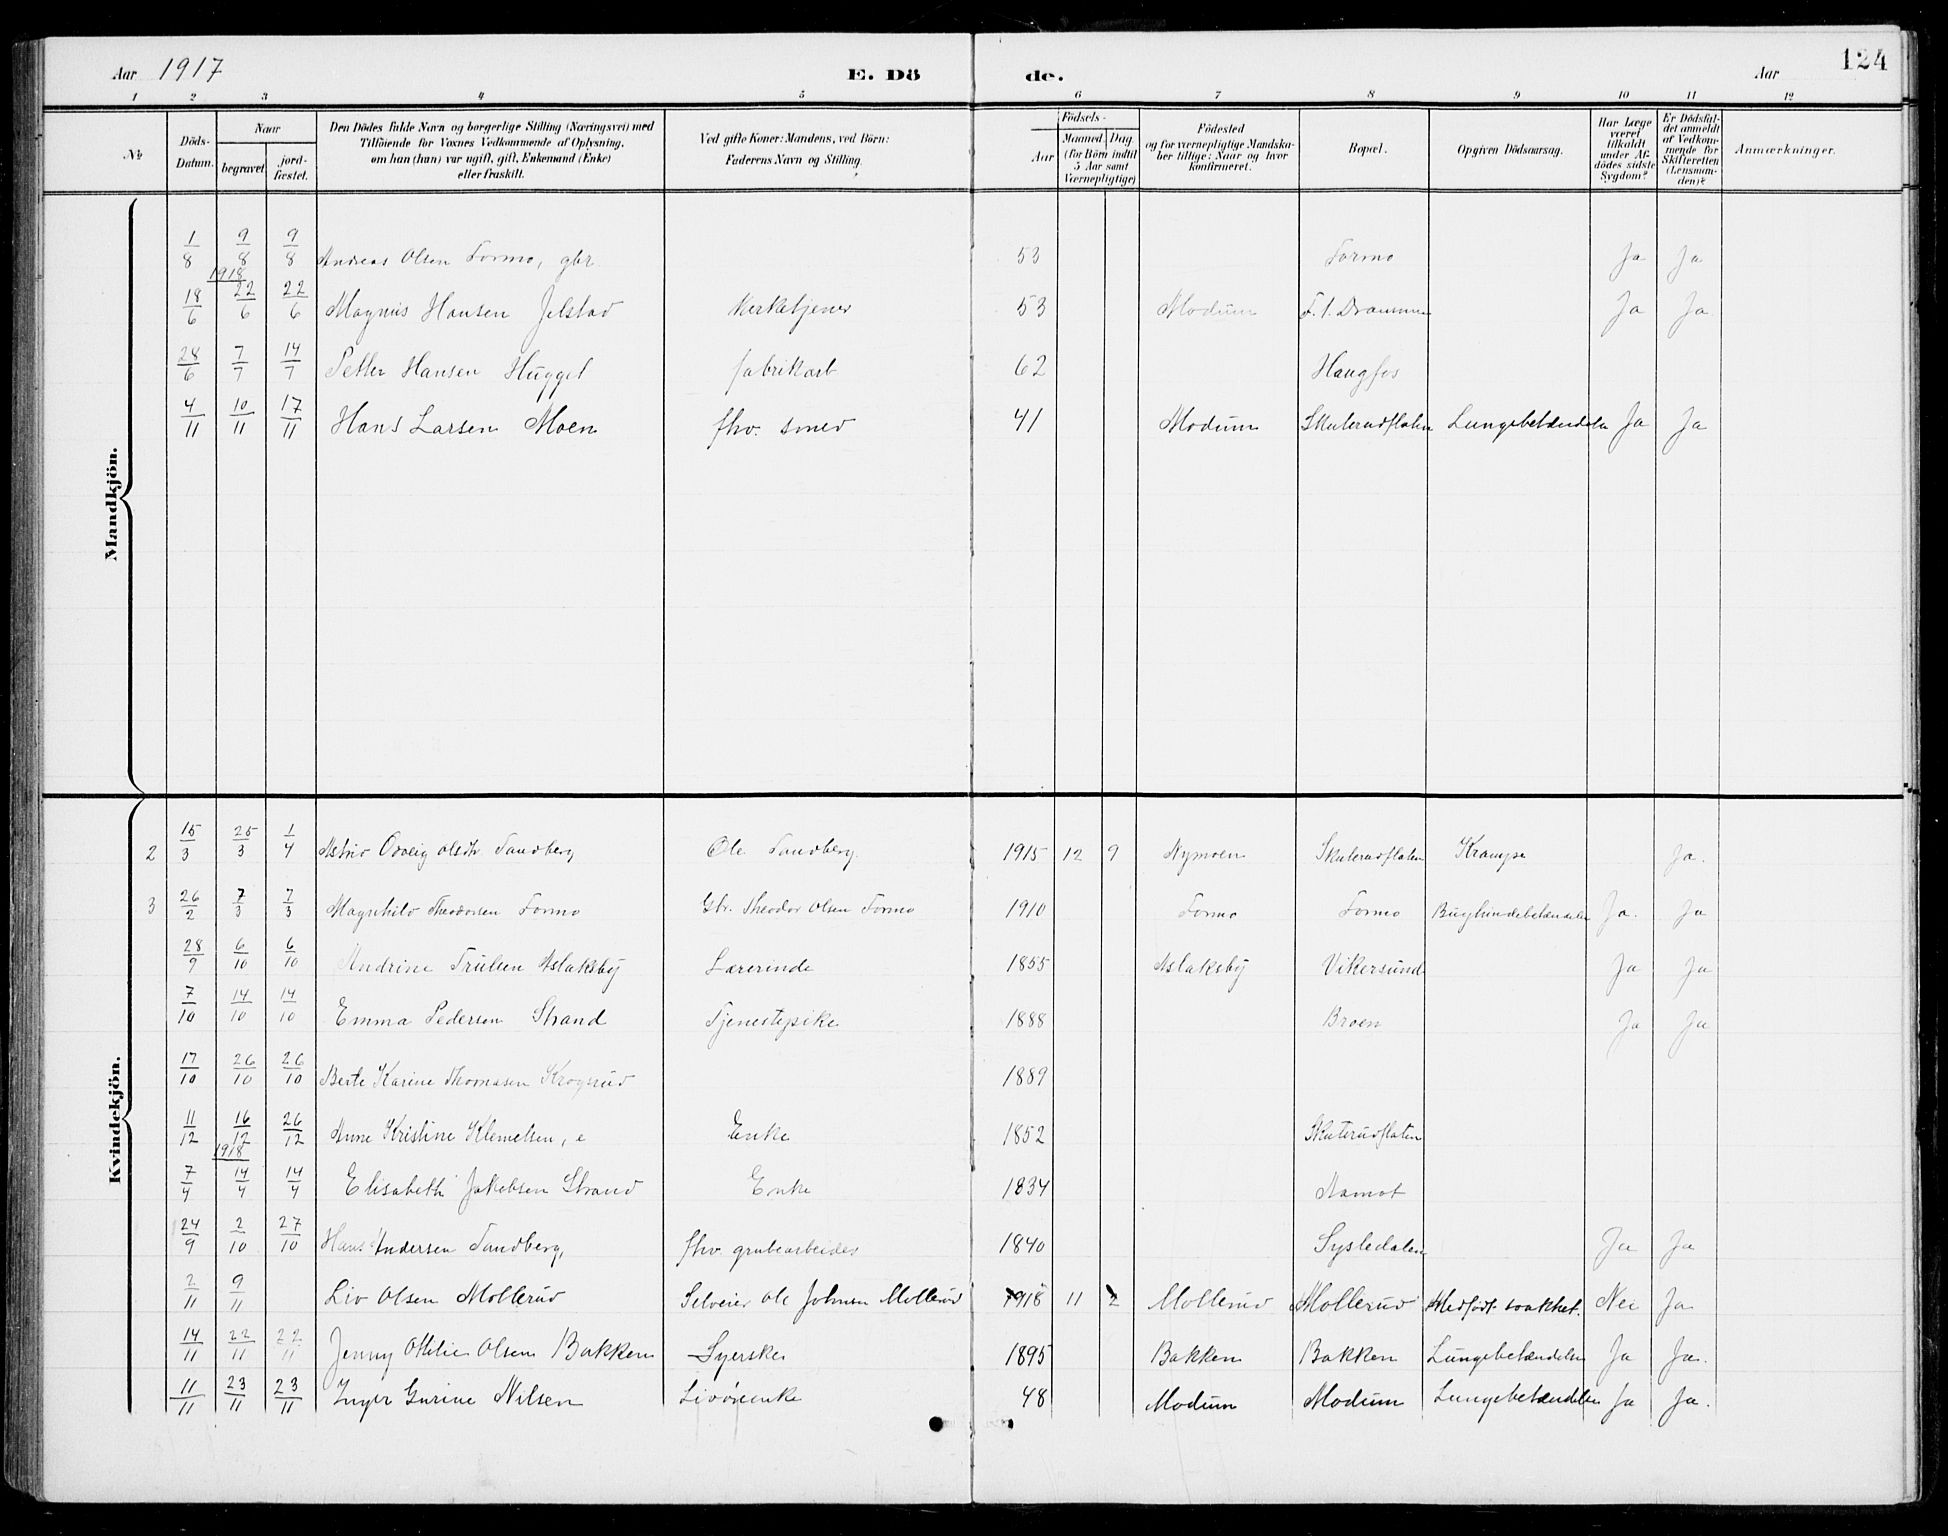 Aar 1917 E. Dö de. Aar 124
1 2 3 4 5 6 7 8 9 10 11 12
№ Döds-Datum. Naar begravet jord-fæstet. Den Dödes fulde Navn og borgerlige Stilling (Næringsvei) med Tilföiende for Voxnes Vedkommende af Oplysning, om han (hun) var ugift, gift, Enkemand (Enke) eller fraskilt. Ved gifte Koner: Mandens, ved Börn: Faderens Navn og Stilling. Födsels- Aar Maaned Dag (for Börn indtil 5 Aar samt Værnepligtige) Födested og for værnepligtige Mandskaber tillige: Naar og hvor konfirmeret. Bopæl. Opgiven Dödsaarsag. Har Læge været tilkaldt under Afdödes sidste Sygdom? Er Dödsfaldet anmeldt af Vedkommende for Skifteretten (Lensmanden)? Anmærkninger.
Mandkjön.
1/8 9/8 9/8 Andreas Olsen Formo, gbr 53 Formo Ja Ja
1918
18/6 22/6 22/6 Magnus Hansen Jelstad Kirketjener 53 Modum F. f. Drammen Ja Ja
28/6 7/7 14/7 Petter Hansen Hugget fabrikarb 62 Haugfos
4/11 10/11 17/11 Hans Larsen Moen fhv. smed 41 Modum Skuterudflaten Lungebetændelse Ja Ja
Kvindekjön.
2 15/3 25/3 1/4 Astrid Oddveig Olsdtr Sandberg Ole Sandberg. 1915 12 9 Nymoen Skuterudflaten Krampe Ja.
3 26/2 7/3 7/3 Magnhild Theodorsen Formo Gbr. Theodor Olsen Formo 1910 Formo Formo Bughindebetændelse Ja. Ja
28/9 6/10 6/10 Andrine Trulsen Aslaksby Lærerinde 1855 Aslaksby Vikersund Ja Ja
7/10 14/10 14/10 Emma Pedersen Strand Tjenestepike 1888 Broen Ja Ja
17/10 26/10 26/10 Berte Karine Thomasen Krogsrud 1889
11/12 16/12 26/12 Anne Kristine Klemetsen, e Enke 1852 Skuterudflaten
1918
7/4 14/4 14/4 Elisabeth Jakobsen Strand Enke 1834 Aamot
24/9 2/10 27/10 Hans Andersen Sandberg, fhv. grubearbeider 1840 Sysledalen Ja Ja
2/11 9/11 Liv Olsen Mollerud Selveier Ole Johnsen Mollerud 1918 11 2 Mollerud Mollerud Medfødt svakhet. Nei Ja
14/11 22/11 22/11 Jenny Ottilie Olsen Bakken Syerske 1895 Bakken Bakken Lungebetændelse Ja Ja.
11/11 23/11 23/11 Inger Gurine Nilsen Livøreenke 48 Modum Modum Lungebetændelse Ja Ja.